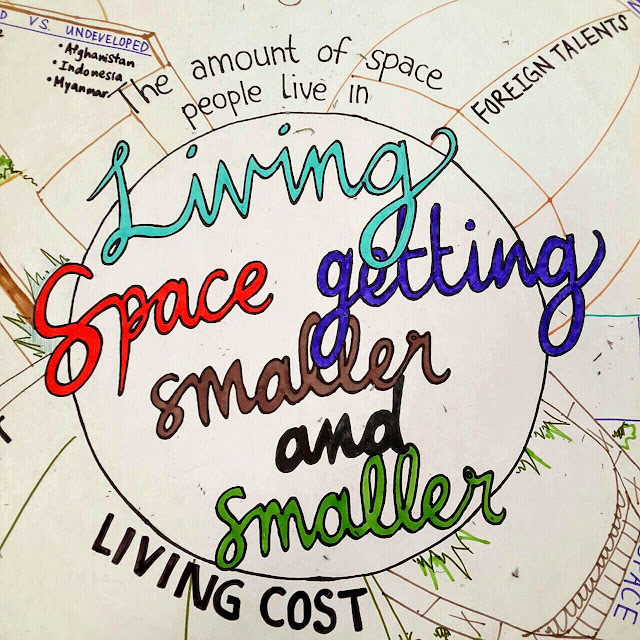 VS. UNDEVELOPED
• Afghanistan
• Indonesia
• Myanmar
The amount of space
people live in
FOREIGN TALENTS
Living
Space getting
smaller
and
smaller
LIVING COST